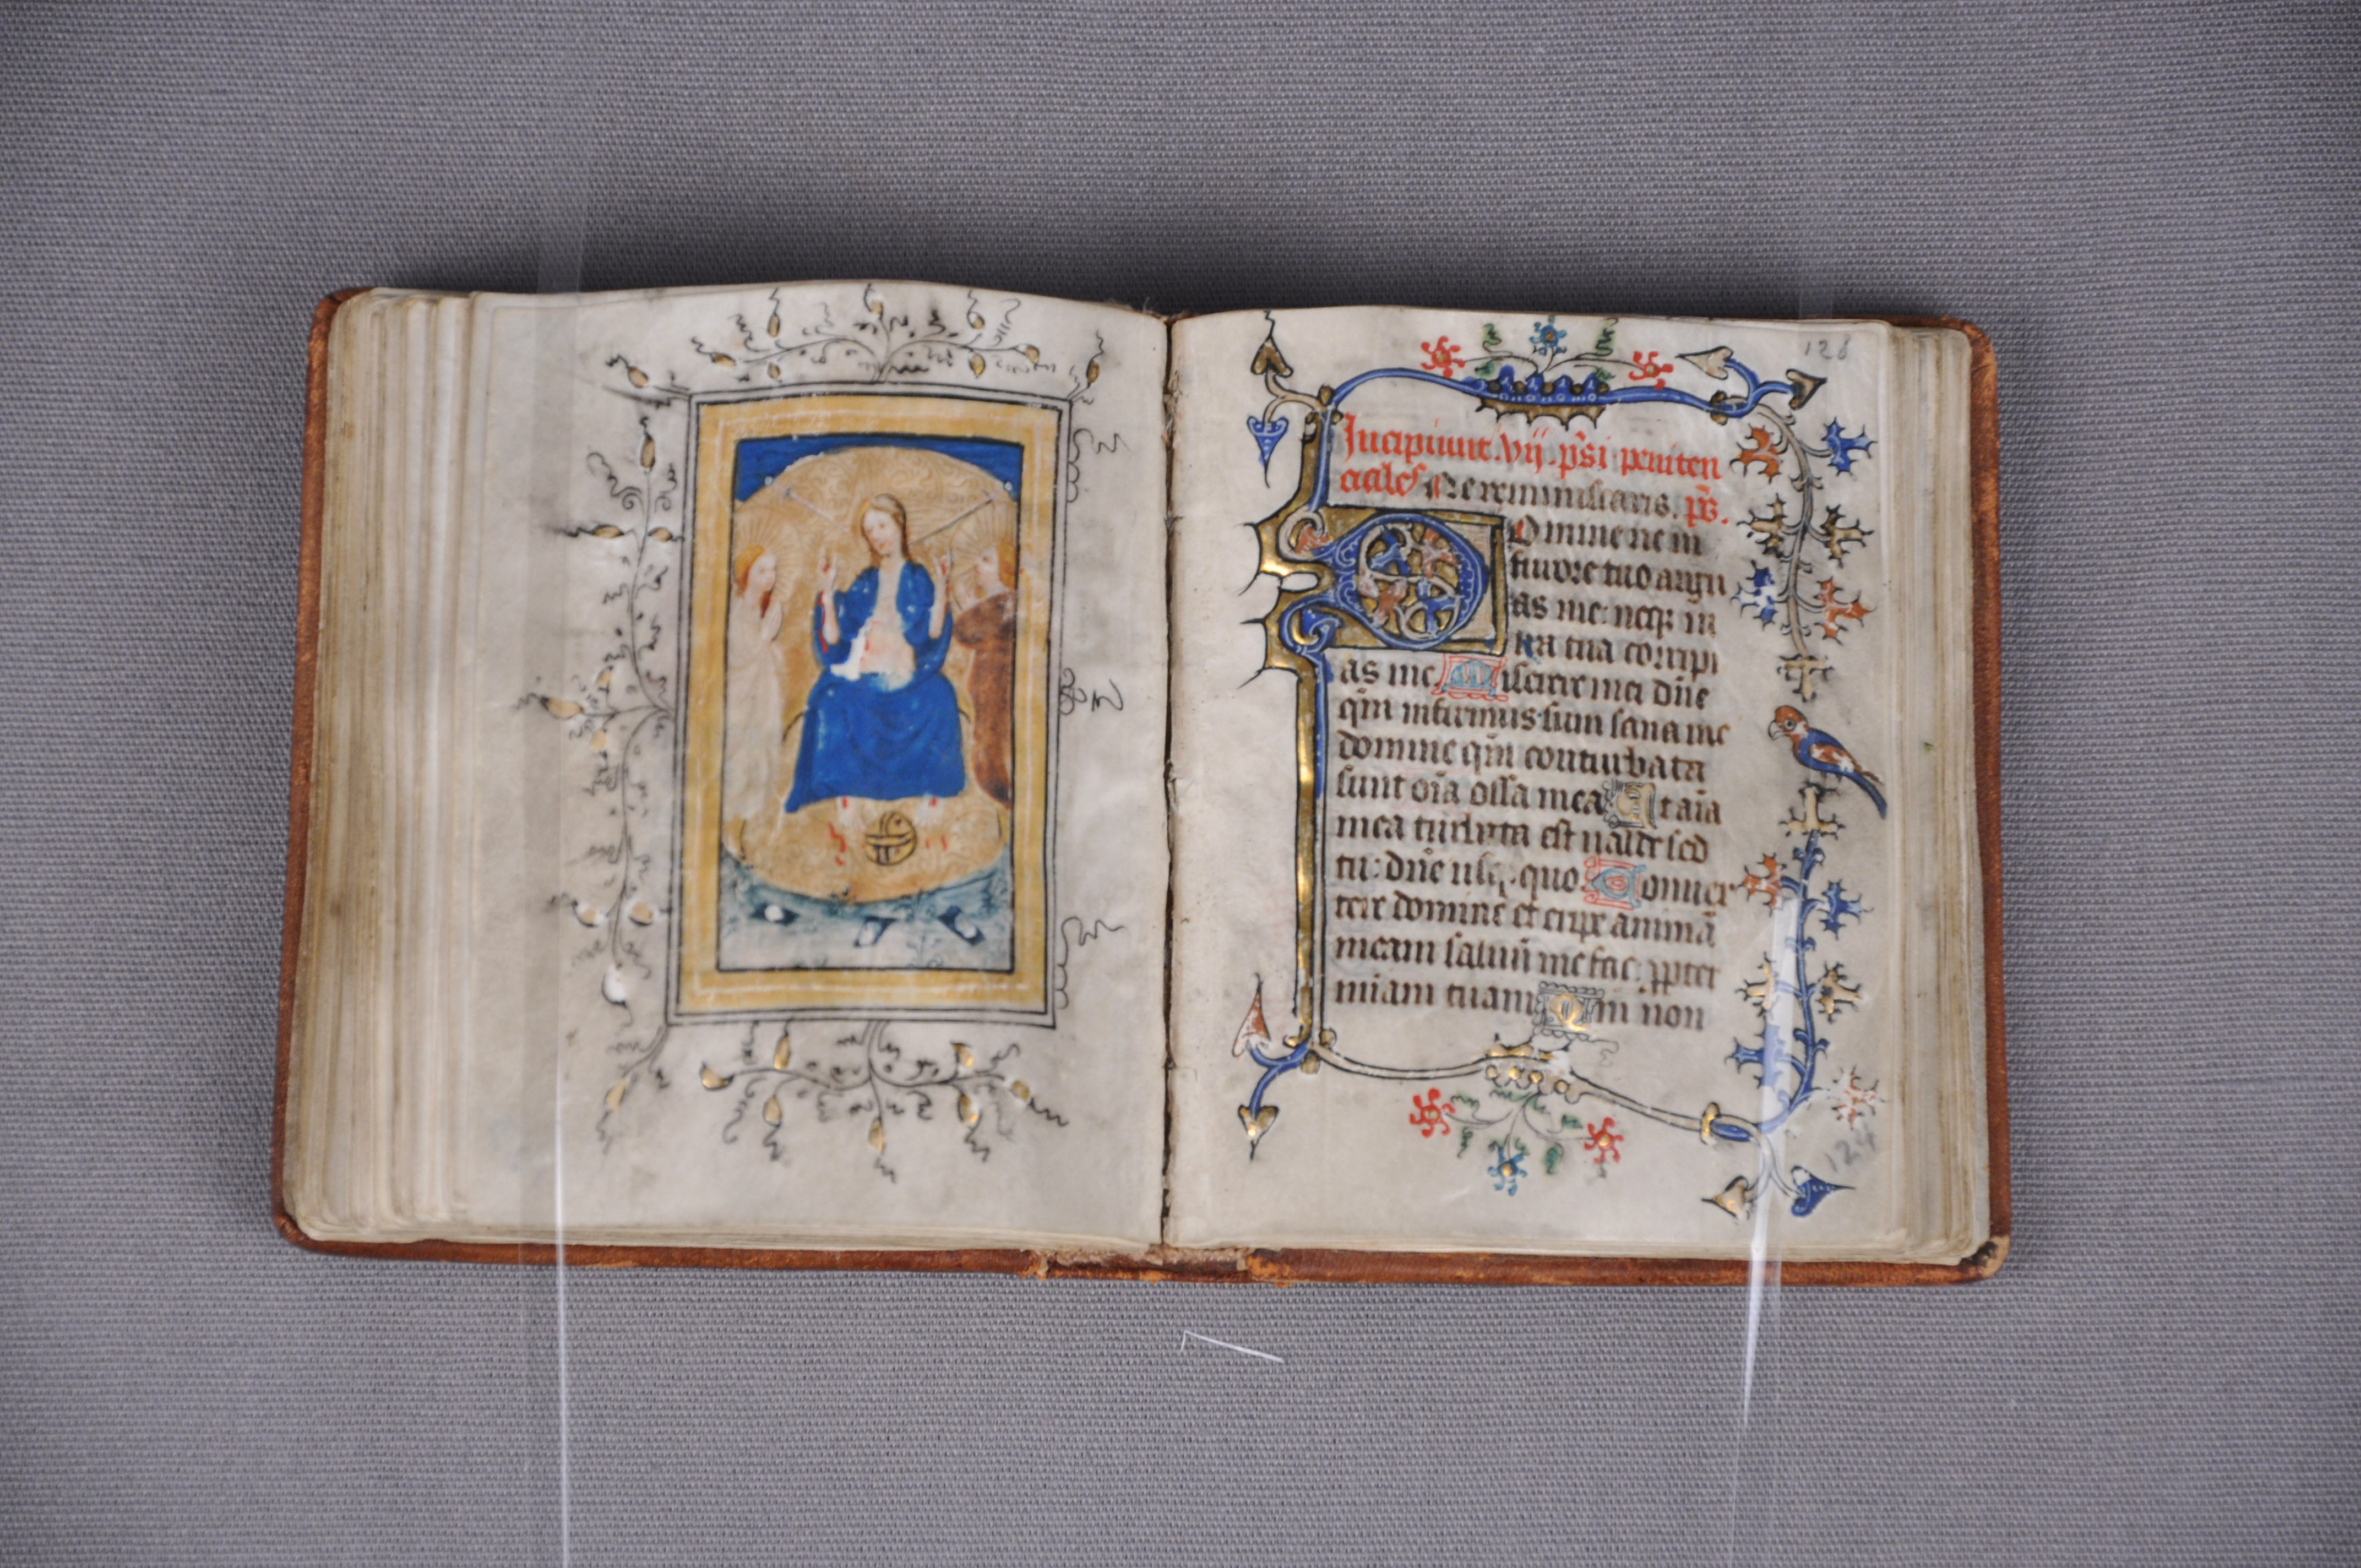 128
Incipiunt .vij. ps̄i peniten
ciales Ne reminiscaris. ps̄.
Domine ne in
furore tuo argu
as me: neqꝫ in
ira tua corripi
as me. Miserere mei dn̄e
qm̄ infirmus sum sana me
domine qm̄ conturbata
sunt oīa ossa mea Et aīa
mea turbata est ualde sed
tu: dn̄e usqꝫ quo. Conuer
tere domine et eripe animā
meam saluū me fac: ꝓpter
miam tuam Qm̄ non
124